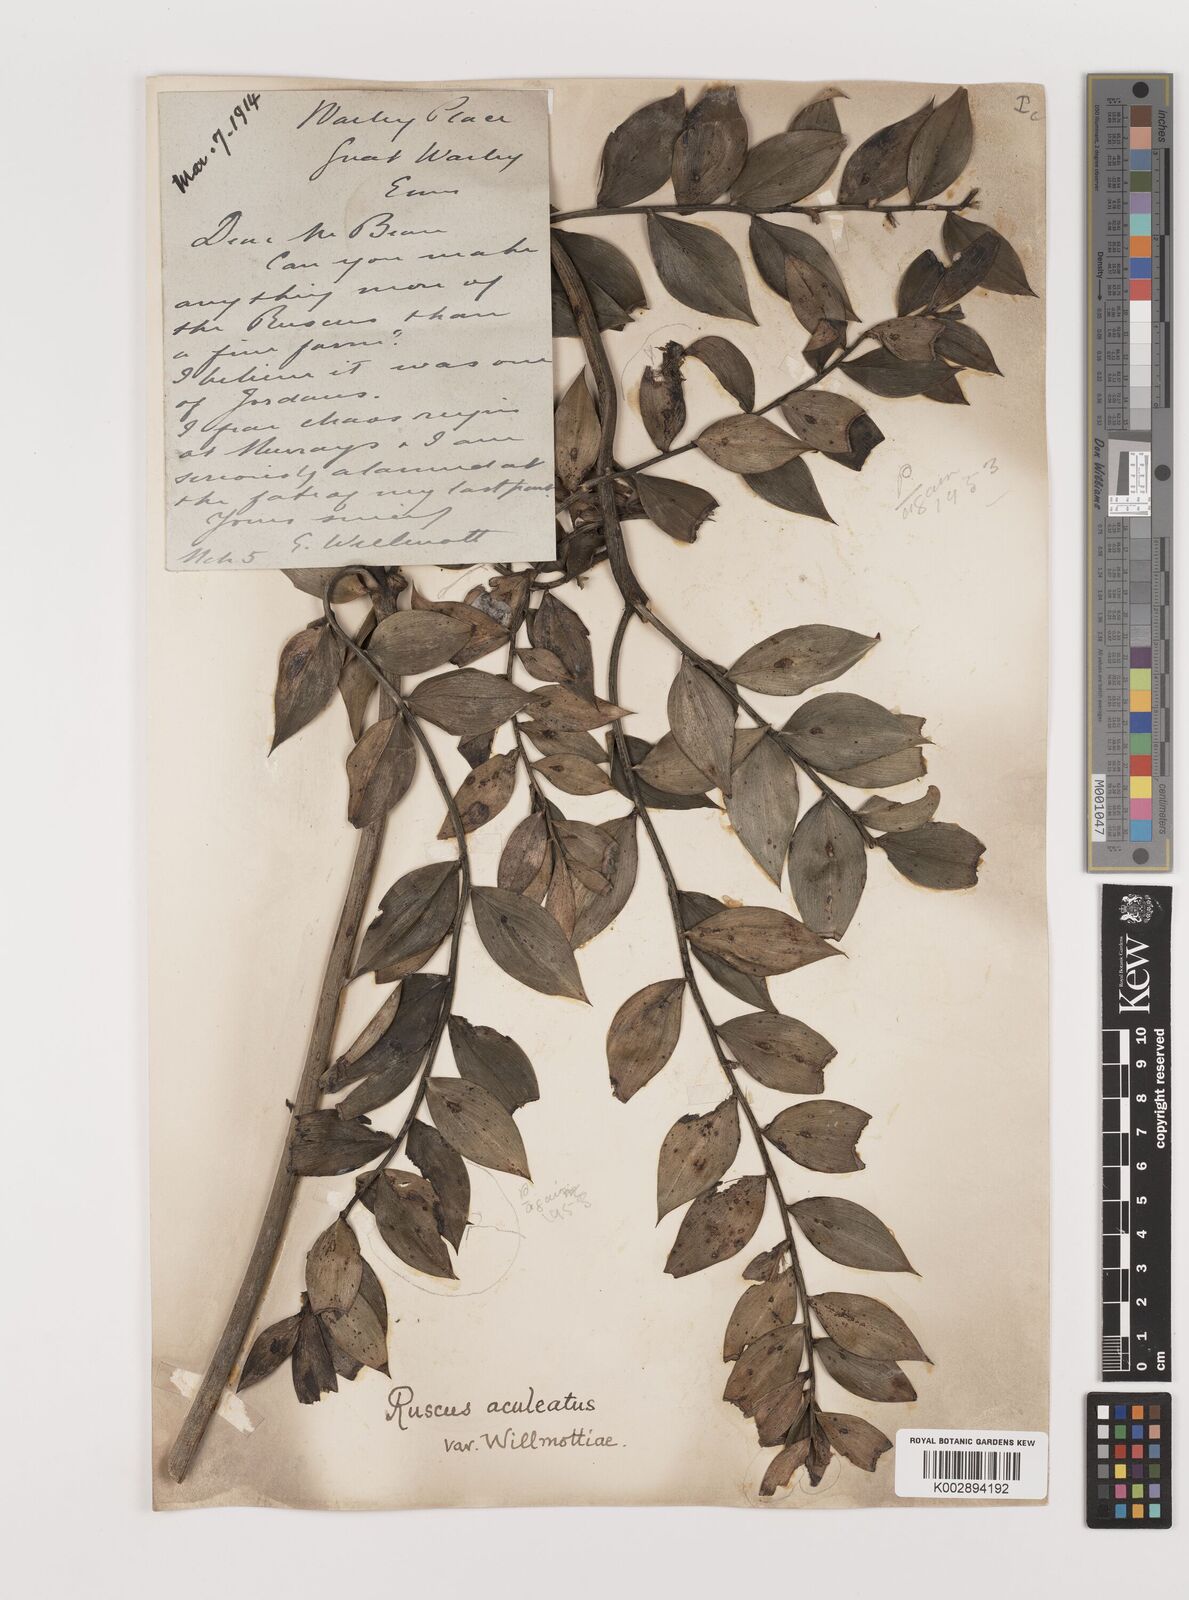 Mar. 7. 1914
Warley Place
Great Warley
Essex
Dear Mr Bean
Can you make
anything more of
the Ruscus than
a fine form?
I believe it was one
of Jordans.
I fear chaos reigns
at Murrays & I am
seriously alarmed at
the fate of my last part.
Yours
E. Willmott
Mch 5
Ruscus aculeatus
var. Willmottiae.
again
ROYAL BOTANIC GARDENS KEW
K002894192
inches
centimeters
Don Williams
M001047
Kew
Royal Botanic Gardens
copyright reserved
0 1 2 3 4 5 6 7 8 9 10
cm